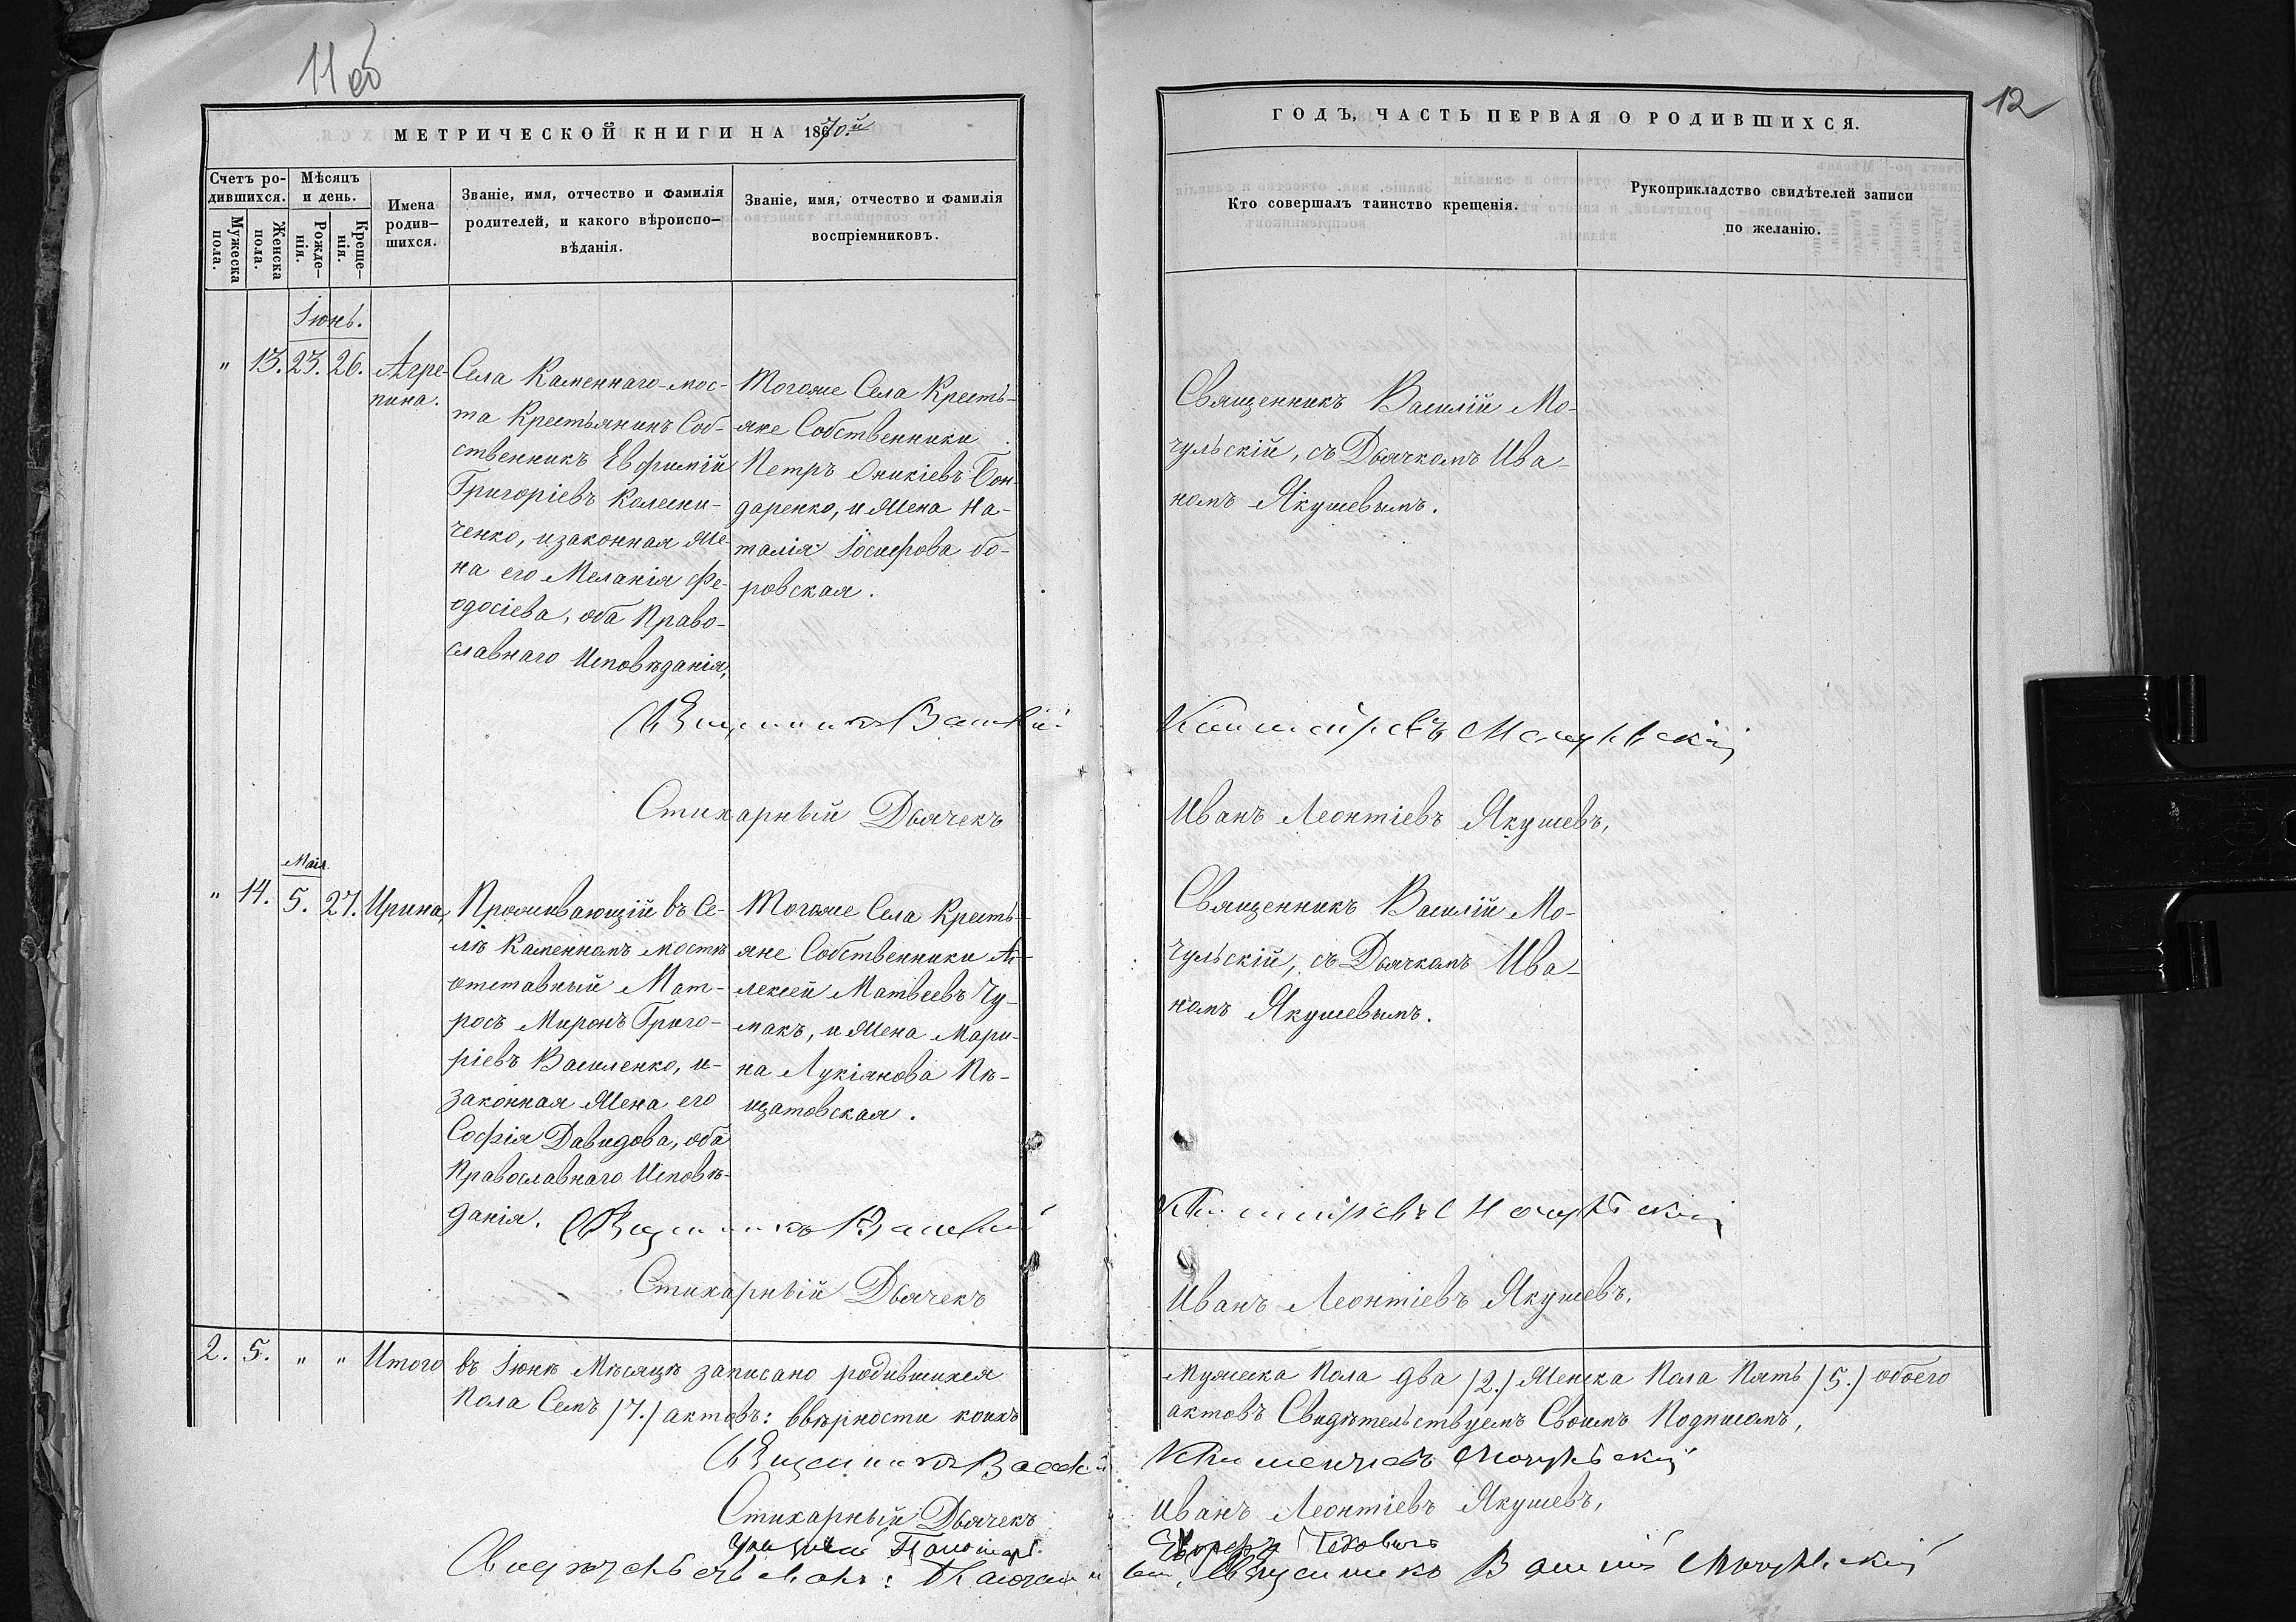 11 об
МЕТРИЧЕСКОЙ КНИГИ НА 1870.й
Счетъ ро-
дившихся.
Мужеска пола.
Женска пола.
Мѣсяцъ
и день.
Рожде-
нія.
Креще-
нія.
Имена
родив-
шихся.
Званіе, имя, отчество и фамилія
родителей, и какого вѣроиспо-
вѣданія.
Званіе, имя, отчество и фамилія
воспріемниковъ.
Іюнь.
" 13. 23. 26.
Агре-
пина.
Села Каменнаго-мос-
та Крестьянинъ Соб-
ственникъ Евфимій
Григоріевъ Колесни-
ченко, и законная Же-
на его Меланія Фе-
одосіева, оба Право-
славнаго Исповѣданія,
Тогоже Села Кресть-
яне Собственники
Петръ Оникіевъ Бон-
даренко, и Жена На-
талія Іосифова бо-
ровская.
Священникъ Василій
Стихарный Дьячекъ
Мая
" 14. 5. 27. Ирина,
Проживающій въ Се-
лѣ Каменномъ мостѣ
отставный Мат-
росъ Миронъ Григо-
ріевъ Василенко, и
законная Жена его
Софія Давидова, оба
Православнаго Исповѣ-
данія.
Тогоже Села Кресть-
яне Собственники А-
лексей Матвеевъ Чу-
макъ, и Жена Мари-
на Лукіянова Пѣ-
щатовская.
Священникъ Василій
Стихарный Дьячекъ
2. 5. " " Итого въ Іюнѣ Мѣсяцѣ записано родившихся
Пола Семъ /7./ актовъ: ввѣрности коихъ
Священникъ Василій
Стихарный Дьячекъ
12
ГОДЪ, ЧАСТЬ ПЕРВАЯ О РОДИВШИХСЯ.
Кто совершалъ таинство крещенія.
Рукоприкладство свидѣтелей записи
по желанію.
Священникъ Василій Мо-
чульскій, съ Дьячкомъ Ива-
номъ Якушевымъ.
Мочульскій
Иванъ Леонтіевъ Якушевъ,
Священникъ Василій Мо-
чульскій, съ Дьячкомъ Ива-
номъ Якушевымъ.
Мочульскій
Иванъ Леонтіевъ Якушевъ,
Мужеска Пола два /2./ Женска Пола Пять /5./ обоего
актовъ Свидѣтельствуемъ Своимъ Подписомъ,
Мочульскій
Иванъ Леонтіевъ Якушевъ,
Священникъ Василій Мочульскій